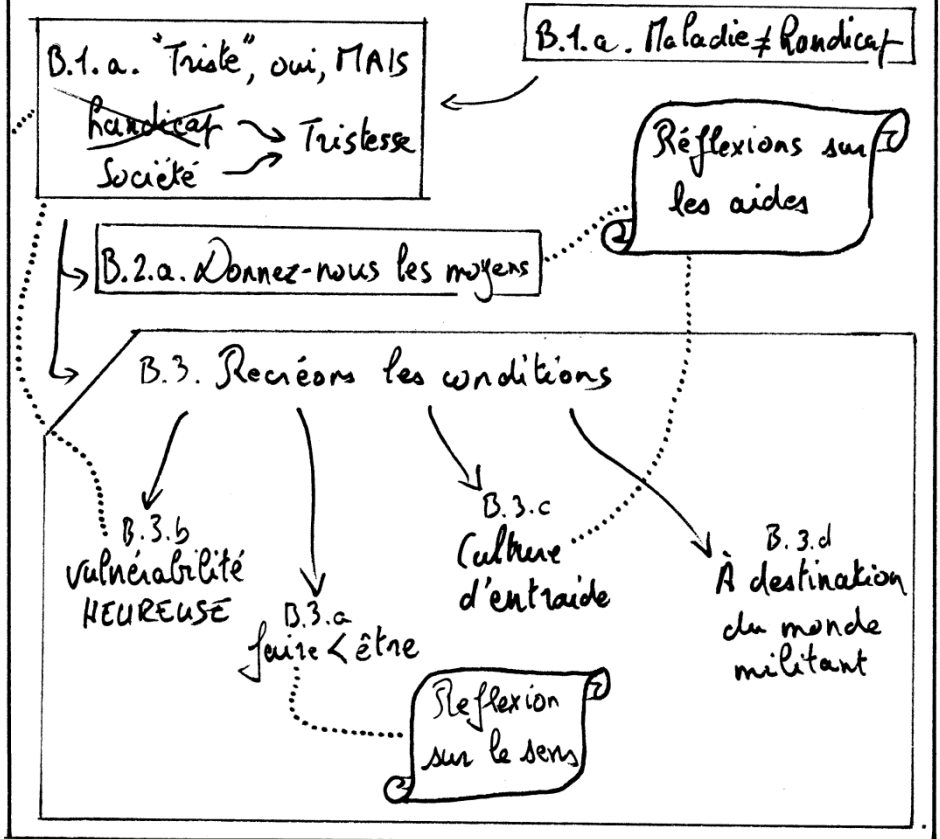 B.1.a. "Triste", oui, MAIS
handicap
Société
Tristesse
B.1.a. Maladie ≠ handicap
Réflexions sur
les aides
B.2.a. Donnez-nous les moyens
B.3. Recréons les conditions
B.3.b
Vulnérabilité
HEUREUSE
B.3.a
faire < être
B.3.c
Culture
d'entraide
B.3.d
À destination
du monde
militant
Reflexion
sur le sens